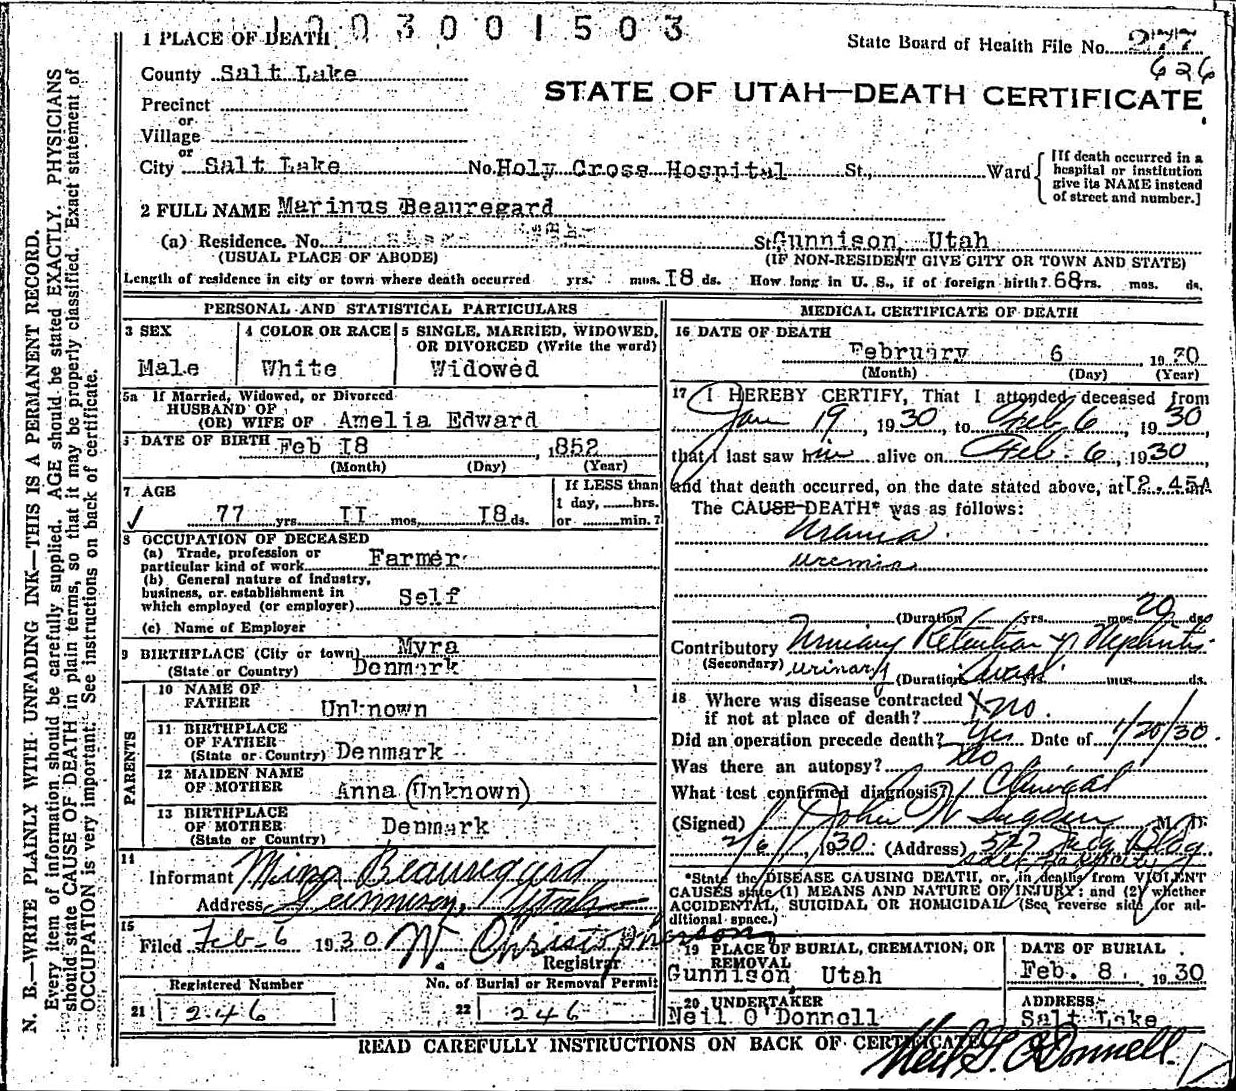 1003001503
1 PLACE OF DEATH
State Board of Health File No. 277
626
County Salt Lake
STATE OF UTAH—DEATH CERTIFICATE
Precinct
or
Village
or
City Salt Lake No. Holy Cross Hospital St., Ward
[If death occurred in a
hospital or institution
give its NAME instead
of street and number.]
2 FULL NAME Marinus Beauregard
(a) Residence. No. St. Gunnison, Utah
(USUAL PLACE OF ABODE) (IF NON-RESIDENT GIVE CITY OR TOWN AND STATE)
Length of residence in city or town where death occurred yrs. mos. 18 ds. How long in U. S., if of foreign birth? 68 yrs. mos. ds.
PERSONAL AND STATISTICAL PARTICULARS
3 SEX 4 COLOR OR RACE 5 SINGLE, MARRIED, WIDOWED,
OR DIVORCED (Write the word)
Male White Widowed
5a If Married, Widowed, or Divorced
HUSBAND OF
(OR) WIFE OF Amelia Edward
6 DATE OF BIRTH Feb 18, 1852
(Month) (Day) (Year)
7 AGE If LESS than
1 day, hrs.
77 yrs. 11 mos. 18 ds. or min.?
8 OCCUPATION OF DECEASED
(a) Trade, profession or
particular kind of work Farmer
(b) General nature of industry,
business, or establishment in
which employed (or employer) Self
(c) Name of Employer
9 BIRTHPLACE (City or town) Myra
(State or Country) Denmark
PARENTS
10 NAME OF
FATHER Unknown
11 BIRTHPLACE
OF FATHER
(State or Country) Denmark
12 MAIDEN NAME
OF MOTHER Anna (Unknown)
13 BIRTHPLACE
OF MOTHER Denmark
(State or Country)
14
Informant Mina Beauregard
Address Gunnison, Utah
15
Filed Feb-6 1930 W. Christopherson
Registrar
Registered Number No. of Burial or Removal Permit
21 246 22 246
MEDICAL CERTIFICATE OF DEATH
16 DATE OF DEATH
February 6 1930
(Month) (Day) (Year)
17 I HEREBY CERTIFY, That I attended deceased from
Jan 19, 1930, to Feb 6, 1930,
that I last saw him alive on Feb. 6, 1930,
and that death occurred, on the date stated above, at 12.45A m
The CAUSE DEATH* was as follows:
Uremia
uremia
(Duration) yrs. mos. 20 ds.
Contributory Urinary Retention Nephritis
(Secondary) urinary (Duration) yrs. mos. ds.
18 Where was disease contracted
if not at place of death? no.
Did an operation precede death? Yes Date of 1/20/30.
Was there an autopsy? No
What test confirmed diagnosis? Clinical
(Signed) John W Sugden M. D.
2/6, 1930 (Address) Bldg.
*State the DISEASE CAUSING DEATH, or, in deaths from VIOLENT
CAUSES state (1) MEANS AND NATURE OF INJURY; and (2) whether
ACCIDENTAL, SUICIDAL OR HOMICIDAL (See reverse side for ad-
ditional space.)
19 PLACE OF BURIAL, CREMATION, OR
REMOVAL
Gunnison, Utah
DATE OF BURIAL
Feb. 8. 1930
20 UNDERTAKER
Neil O'Donnell
ADDRESS
Salt Lake
READ CAREFULLY INSTRUCTIONS ON BACK OF CERTIFICATE
Neil G. O'Donnell.
N. B.—WRITE PLAINLY WITH UNFADING INK—THIS IS A PERMANENT RECORD.
Every item of information should be carefully supplied. AGE should be stated EXACTLY. PHYSICIANS
should state CAUSE OF DEATH in plain terms, so that it may be properly classified. Exact statement of
OCCUPATION is very important. See instructions on back of certificate.